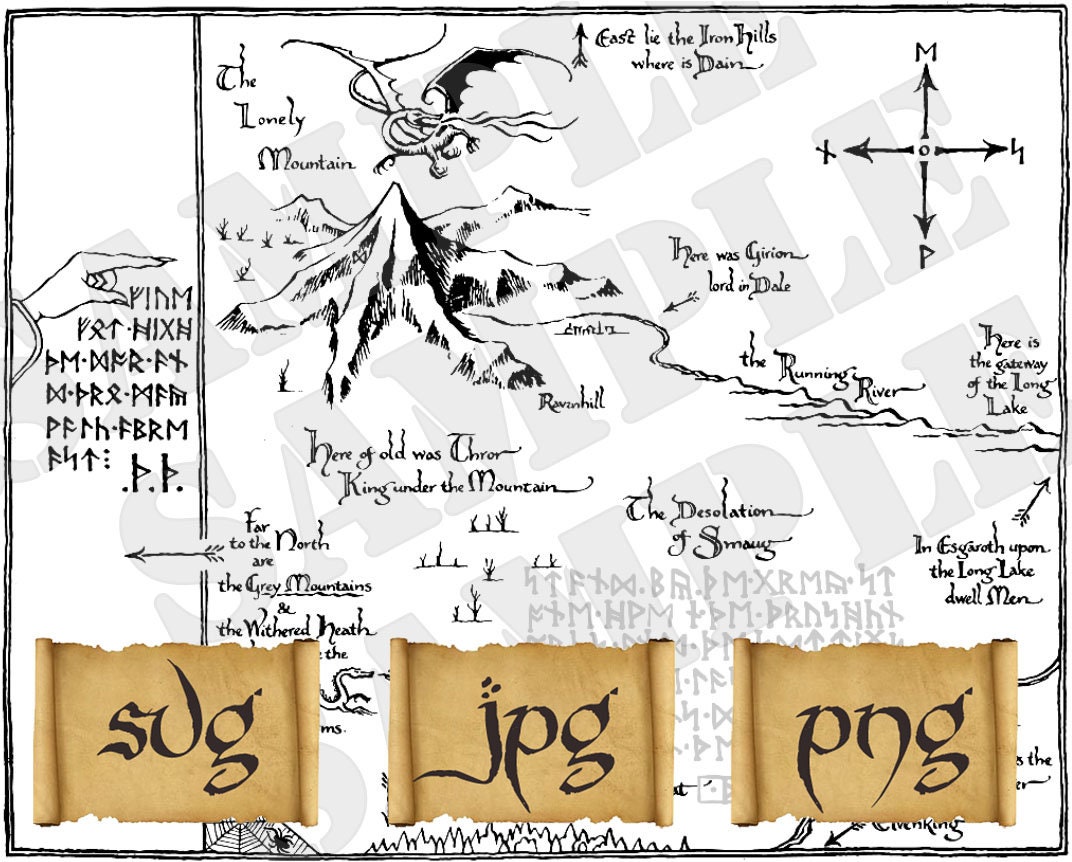 The
Lonely
Mountain
East lie the Iron Hills
where is Dain
ᛖ
ᚾ
ᛋ
ᚹ
Here was Girion
lord in Dale
the Running River
Here is
the gateway
of the Long
Lake
Ravenhill
ᚠᛁᚢᛖ
ᚠᛟᛏ·ᚻᛁᚷᚻ
ᚦᛖ·ᛞᚩᚱ·ᚪᚾ
ᛞ·ᚦᚱᛟ·ᛗᚪᚣ
ᚹᚪᛚᚳ·ᚪᛒᚱᛖ
ᚪᛋᛏ⁝
.ᚦ.ᚦ.
Here of old was Thror
King under the Mountain
The Desolation
of Smaug
Far
to the North
are
the Grey Mountains
&
the Withered Heath
the
In Esgaroth upon
the Long Lake
dwell Men
ᛋᛏᚪᚾᛞ·ᛒᚣ·ᚦᛖ·ᚷᚱᛖᚣ·ᛋᛏ
svg
jpg
png
the
Elvenking
SAMPLE
SAMPLE
SAMPLE